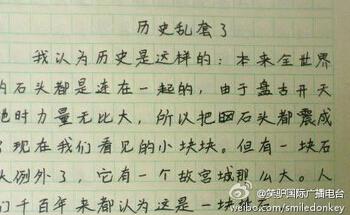 历史乱套了
我认为历史是这样的：本来全世界
的石头都是连在一起的，由于盘古开天
时力量无比大，所以把石头都震成
了现在我们看见的小块块。但有一块石
头例外了，它有一个故宫城那么大。人
们千百年来都认为这是一块
@笑驴国际广播电台
weibo.com/smiledonkey